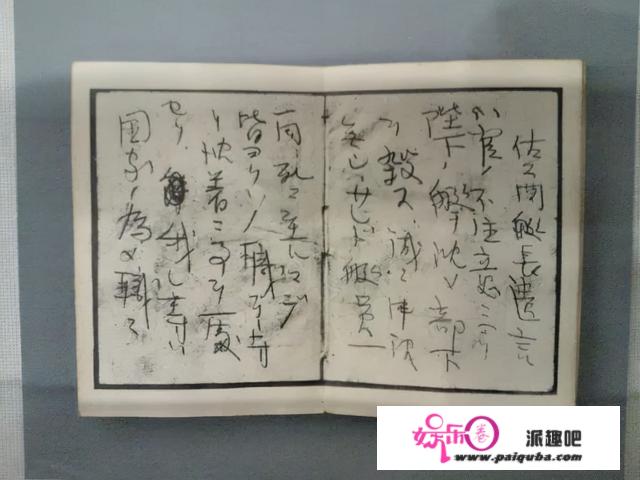 佐久間艇長遺言
小官ノ不注意ニヨリ
陛下ノ艇ヲ沈メ部下
ヲ殺ス、誠ニ申訳
無シ、サレド艇員一
同、死ニ至ルマデ
皆ヨクソノ職ヲ守
リ沈着ニ事ヲ處
セリ 我レ等ハ
國家ノ為メ職ニ
娱乐卷 派趣吧
www.paiquba.com